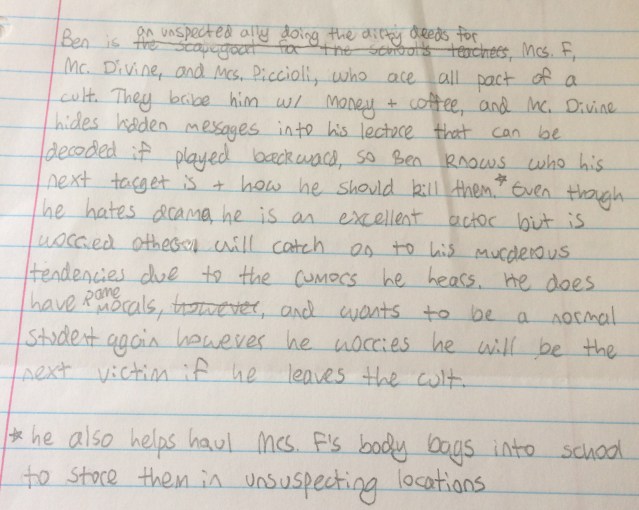 an unspected ally doing the dirty deeds for
Ben is the scapegoat for the school's teachers, Mrs. F,
Mr. Divine, and Mrs. Piccioli, who are all part of a
cult. They bribe him w/ money + coffee, and Mr. Divine
hides hidden messages into his lecture that can be
decoded if played backward, so Ben knows who his
next target is + how he should kill them.* Even though
he hates drama, he is an excellent actor but is
worried others will catch on to his murderous
tendencies due to the rumors he hears. He does
have some morals, however, and wants to be a normal
student again however he worries he will be the
next victim if he leaves the cult.
* he also helps haul Mrs. F's body bags into school
to store them in unsuspecting locations